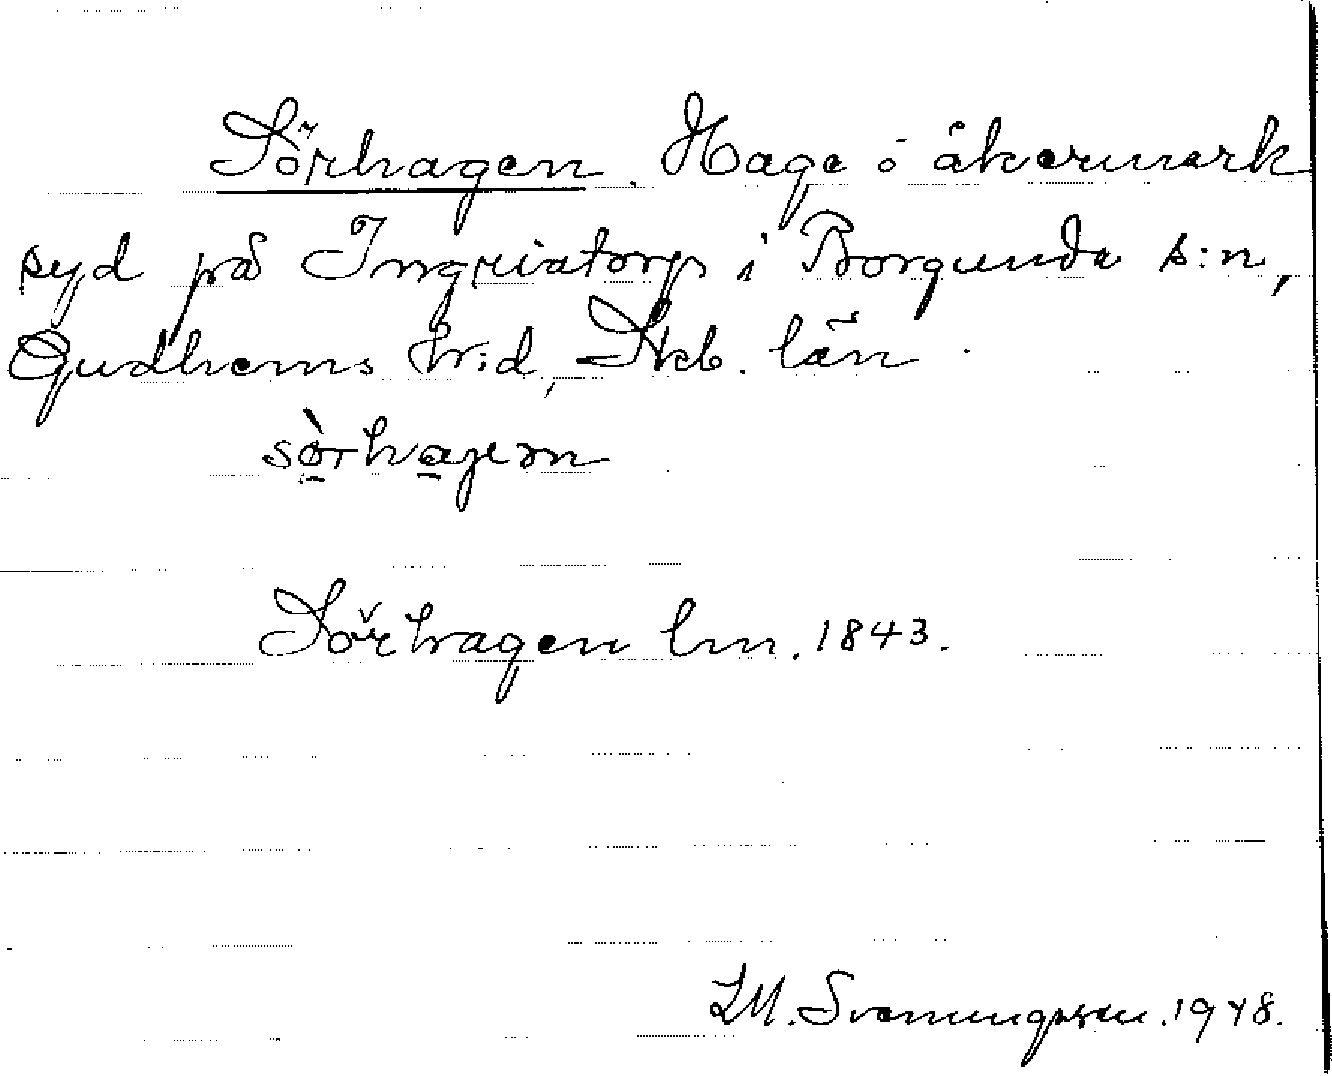 Sörhagen. Hage o åkermark
syd på Ingriatorp i Borgunda s:n,
Gudhems hr:d, Skb. län.
sòrhagen
Sörhagen lm. 1843.
L.M. Svenungsson. 1948.